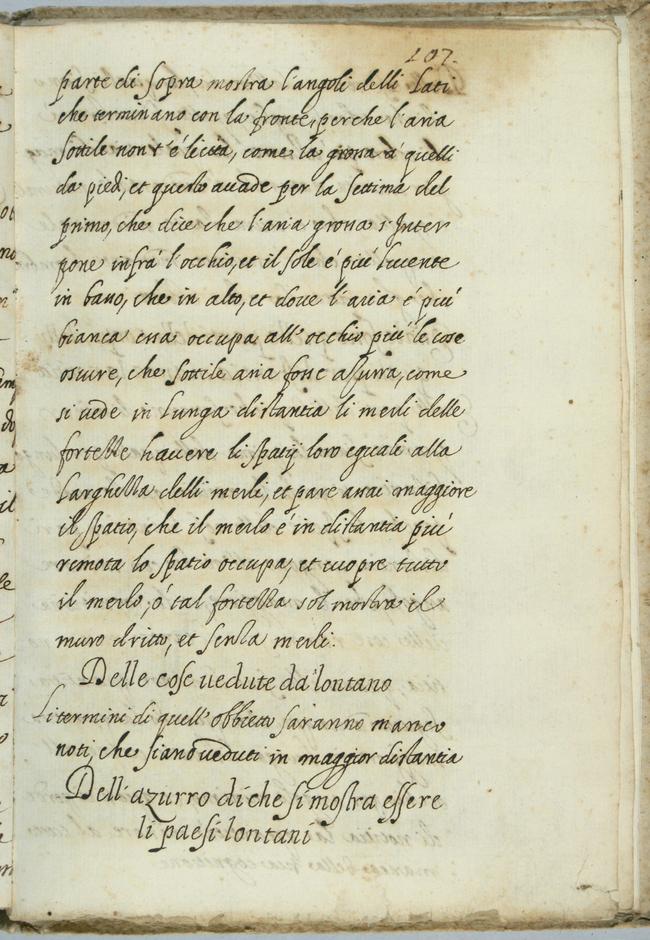 107.
parte di sopra mostra l'angoli delli lati
che terminano con la fronte, perche l'aria
sottile non t'è lecita, come la grossa à quelli
da piedi, et questo accade per la settima del
primo, che dice che l'aria grossa s'Inter
pone infrà l'occhio, et il sole é piu' lucente
in basso, che in alto, et doue l'aria é piu'
bianca essa occupa all'occhio piu' le cose
oscure, che sottile aria fosse azurra, come
si uede in lunga distantia li merli delle
fortezze hauere li spatij loro eguali alla
larghezza delli merli, et pare assai maggiore
il spatio, che il merlo é in distantia piu'
remota lo spatio occupa, et cuopre tutto
il merlo, ó tal fortezza sol mostra il
muro dritto, et senza merli.
Delle cose uedute da lontano
Li termini di quell'obbietto saranno manco
noti, che siano ueduti in maggior distantia
Dell'azurro di che si mostra essere
li paesi lontani